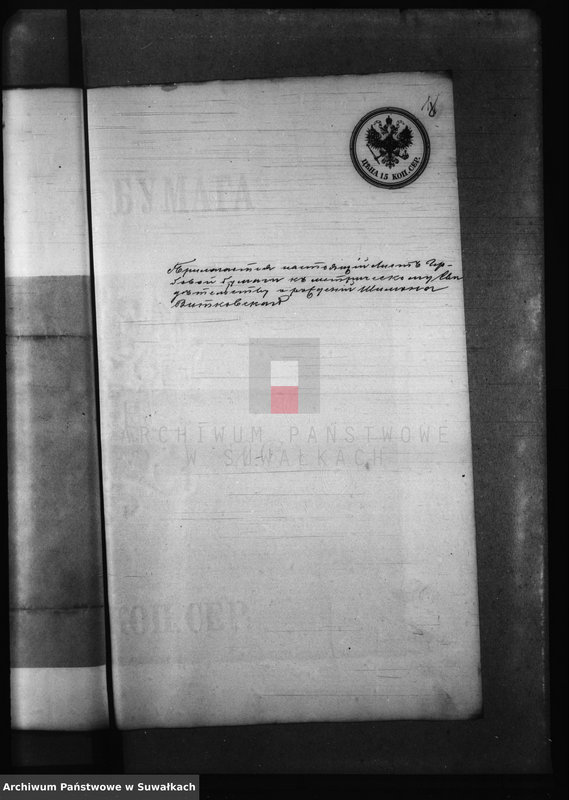 18
ЦѢНА 15 КОП. СЕР.
БУМАГА
Прилагается настоящій листъ Гер-
бовой бумаги къ метрическому Сви
дѣтельству о рожденіи Шимона
Витковскаго
ARCHIWUM PAŃSTWOWE
W SUWAŁKACH
КОП. СЕР.
Archiwum Państwowe w Suwałkach